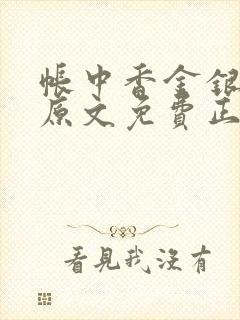 帳中香金銀
原文免費正
看見我沒有